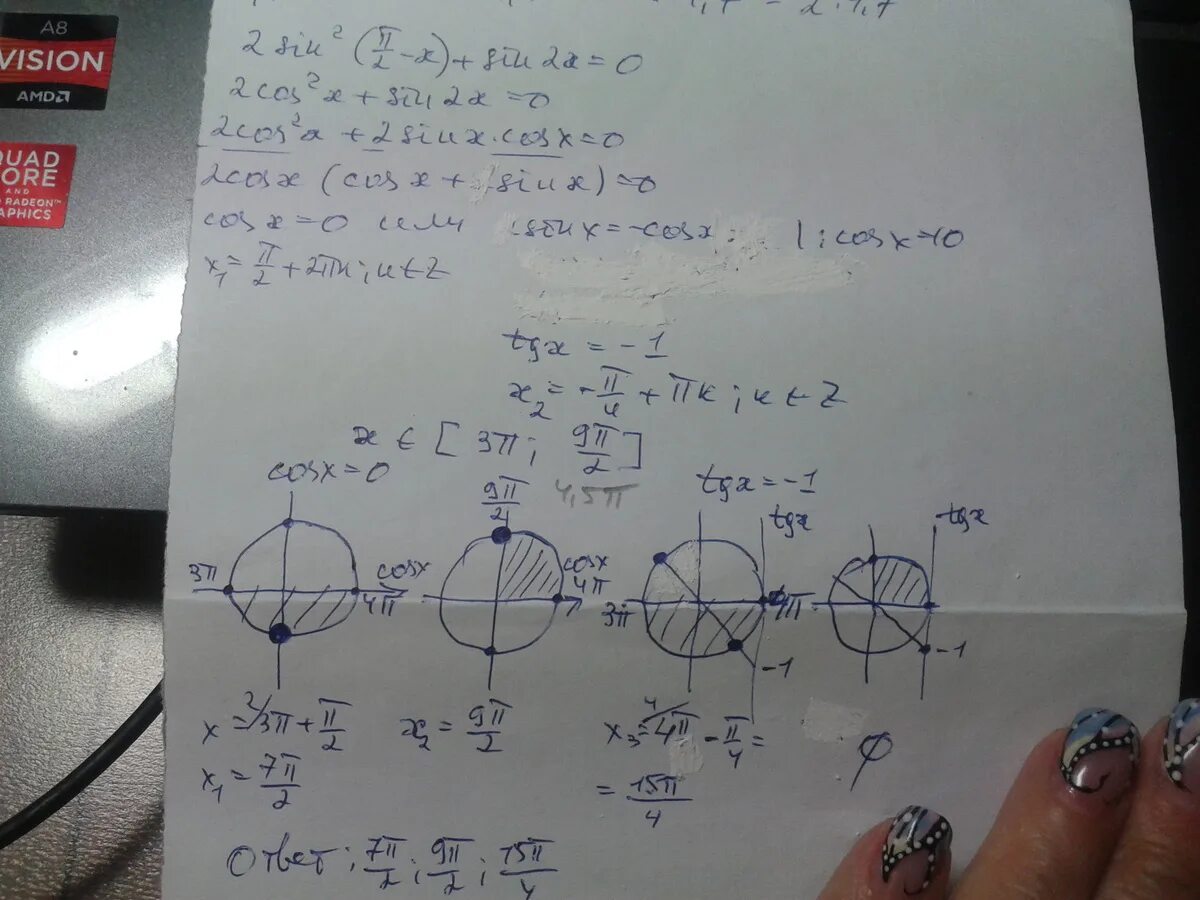 A8
VISION
AMD
QUAD
CORE
AND
RADEON™
GRAPHICS
2 sin² (π/2 - x) + sin 2x = 0
2cos²x + sin 2x = 0
2cos²x + 2 sin x · cos x = 0
2cos x (cos x + sin x) = 0
cos x = 0 или sin x = -cos x | : cos x ≠ 0
x₁ = π/2 + 2πk; k ∈ Z
tg x = -1
x₂ = -π/4 + πk; k ∈ Z
x ∈ [3π; 9π/2]
4,5π
cos x = 0
tg x = -1
3π
cos x
4π
9π/2
cos x
4π
3π
tg x
4π
-1
tg x
-1
x = 3π + π/2
x₂ = 9π/2
x₃ = 4π - π/4 =
φ
x₁ = 7π/2
= 15π/4
Ответ: 7π/2; 9π/2; 15π/4